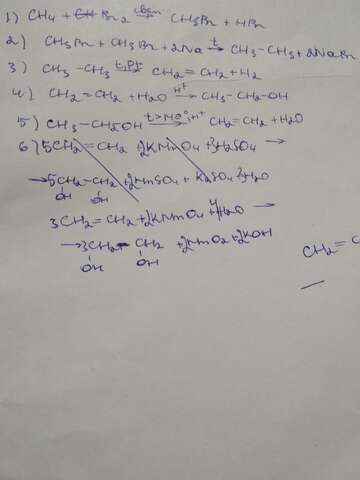 1) CH4 + Br2 свет→ CH3Br + HBr
2) CH3Br + CH3Br + 2Na t→ CH3-CH3 + 2NaBr
3) CH3-CH3 t,Pt→ CH2=CH2 + H2
4) CH2=CH2 + H2O H+→ CH3-CH2-OH
5) CH3-CH2OH t>140°,H+→ CH2=CH2 + H2O
6) 5CH2=CH2 + 2KMnO4 + 3H2SO4 →
→ 5CH2-CH2 + 2MnSO4 + K2SO4 + 2H2O
OH OH
3CH2=CH2 + 2KMnO4 + 4H2O →
→ 3CH2-CH2 + 2MnO2 + 2KOH
OH OH
CH2=C